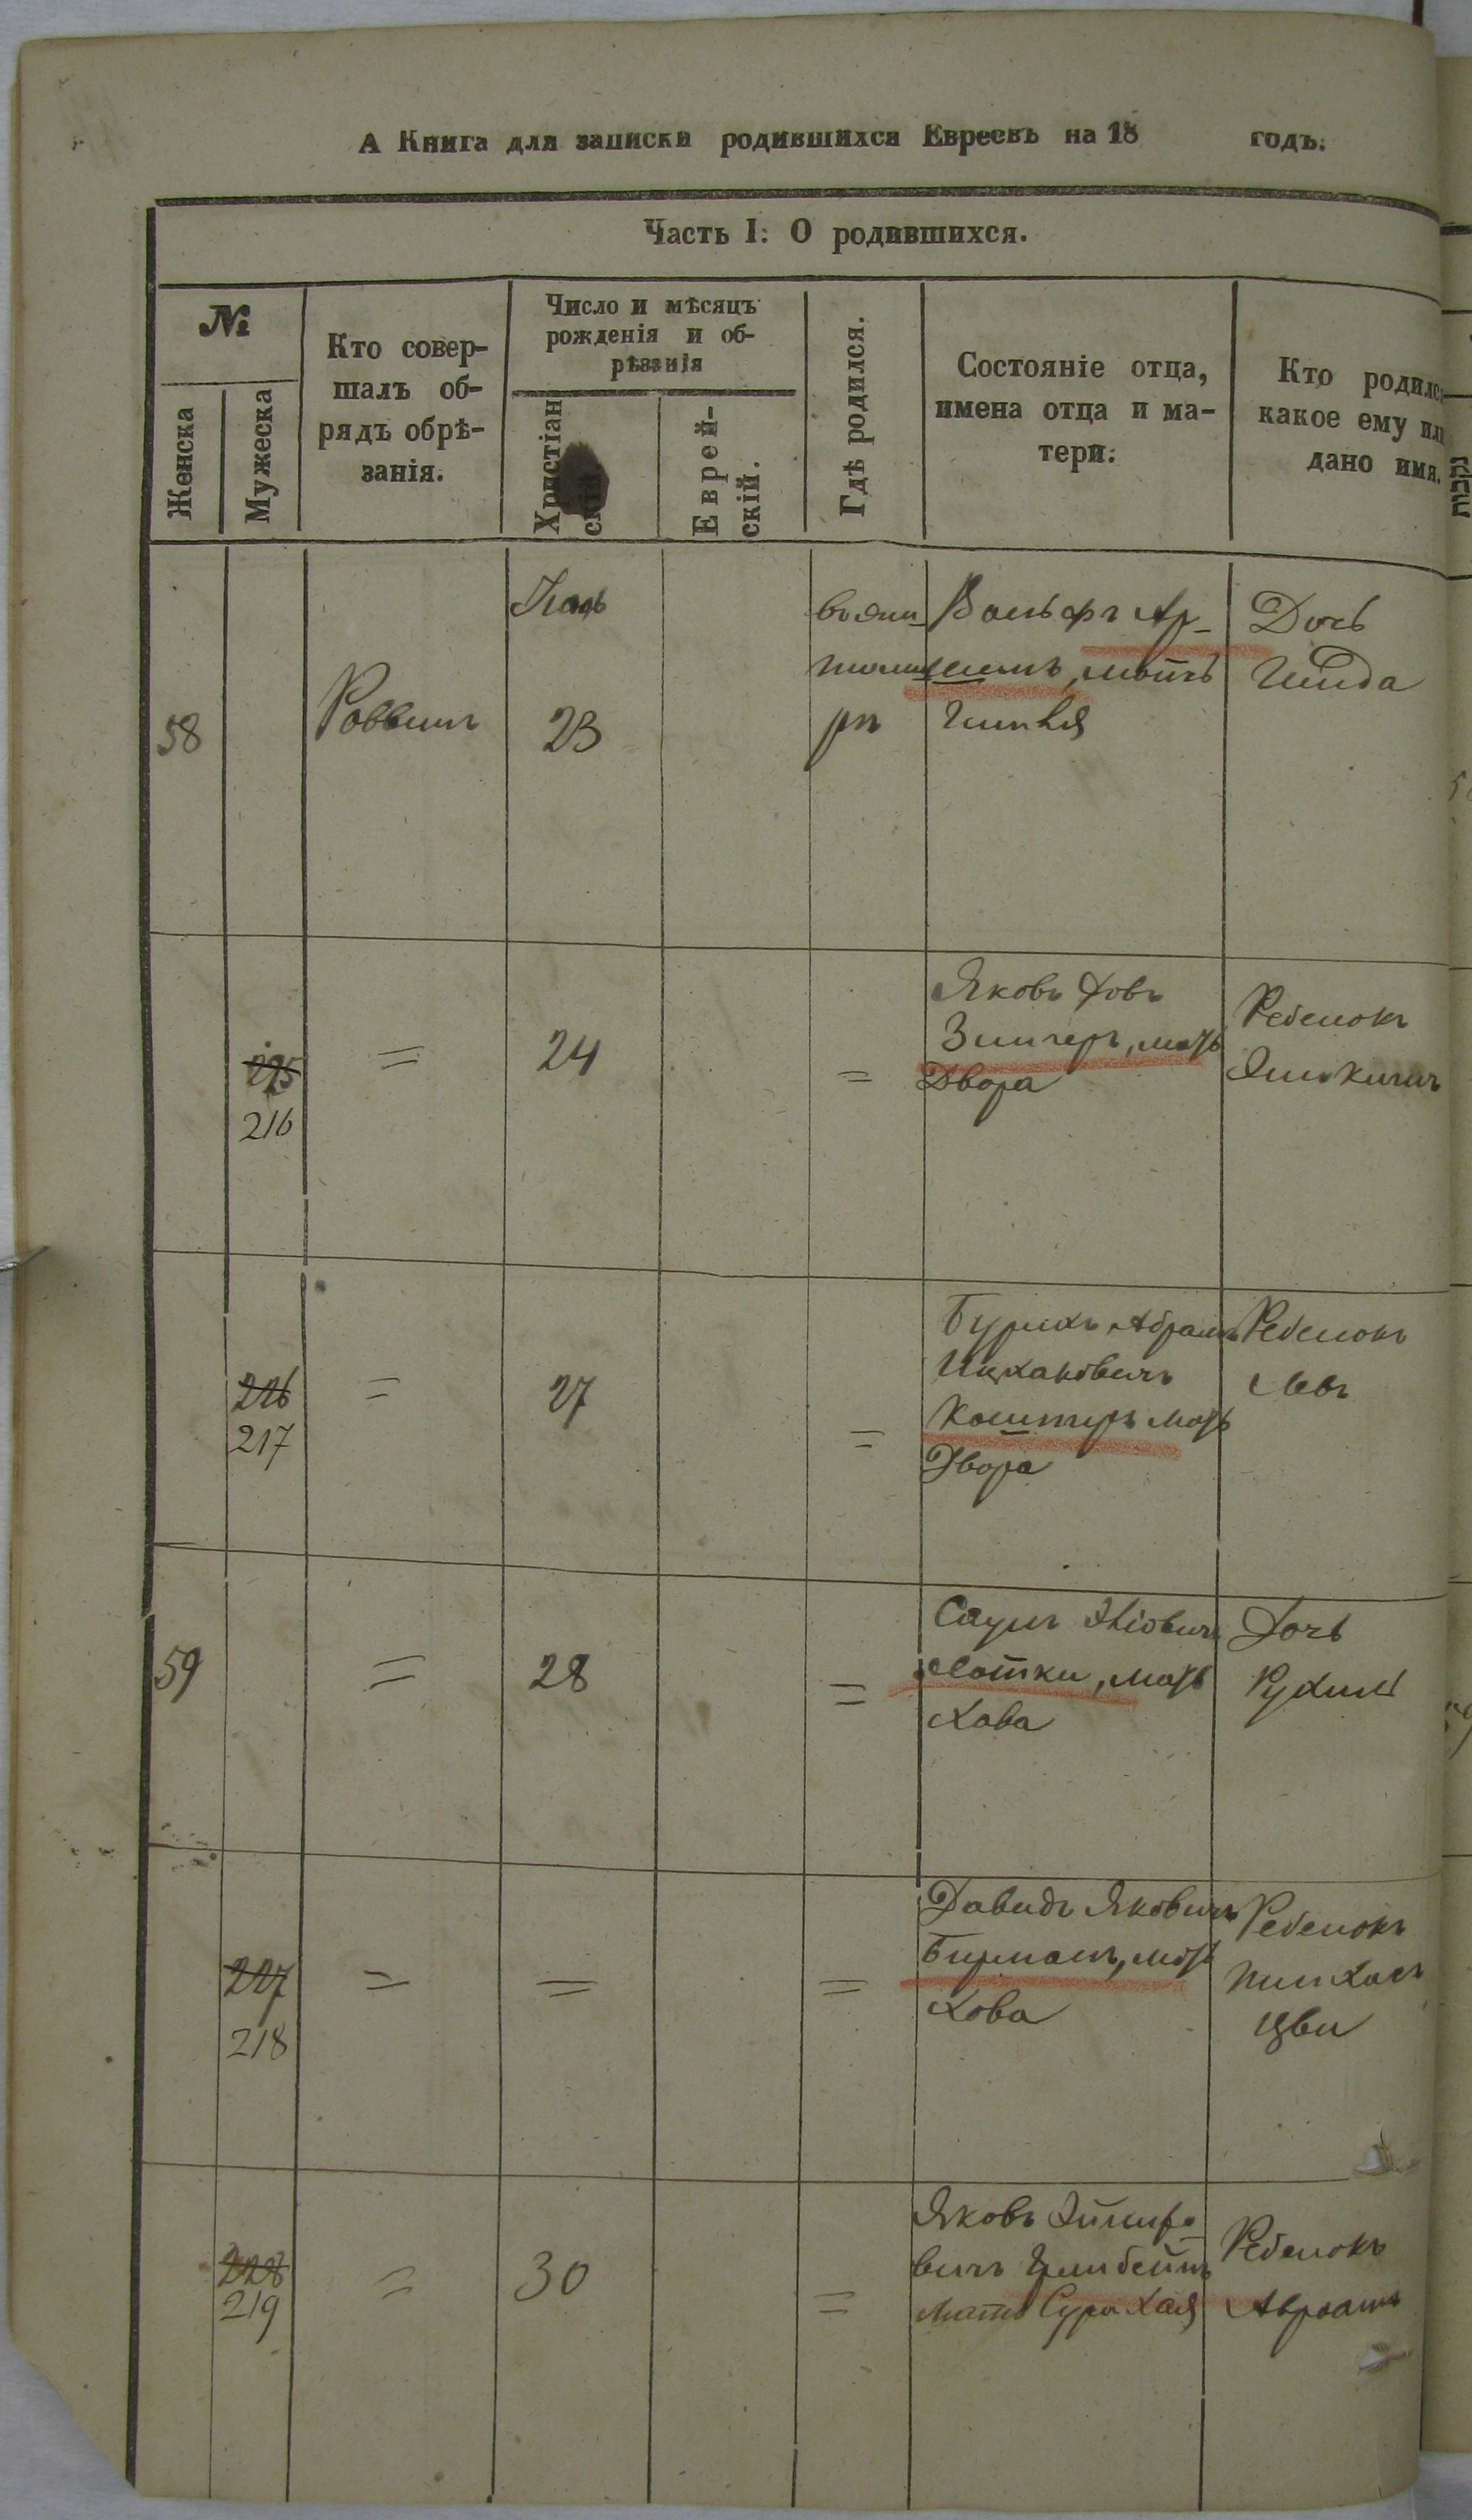 А Книга для записки родившихся Евреевъ на 18 годъ.
Часть I: О родившихся.
№
Женска
Мужеска
Кто совер-
шалъ об-
рядъ обрѣ-
занія.
Число и мѣсяцъ
рожденія и об-
рѣзанія
Христіан
скій
Еврей-
скій.
Гдѣ родился.
Состояніе отца,
имена отца и ма-
тери.
Кто родилс
какое ему или
дано имя.
58
Раввинъ
23
Вольфъ Ар-
мать
Дочь
Гинда
216
=
24
=
Яковъ Довъ
Зингеръ, мать
Двора
Ребенокъ
226
217
=
27
=
Абрам
Ицхаковичъ
мать
Двора
Ребенокъ
Левъ
59
=
28
=
Саулъ
мать
Хава
Дочь
227
218
=
=
=
Давидъ Яковичъ
Бирманъ, мать
Хова
Ребенокъ
Пинхасъ
Цви
228
219
=
30
=
Яковъ
вичъ
мать Сура Хая
Ребенокъ
Авраамъ